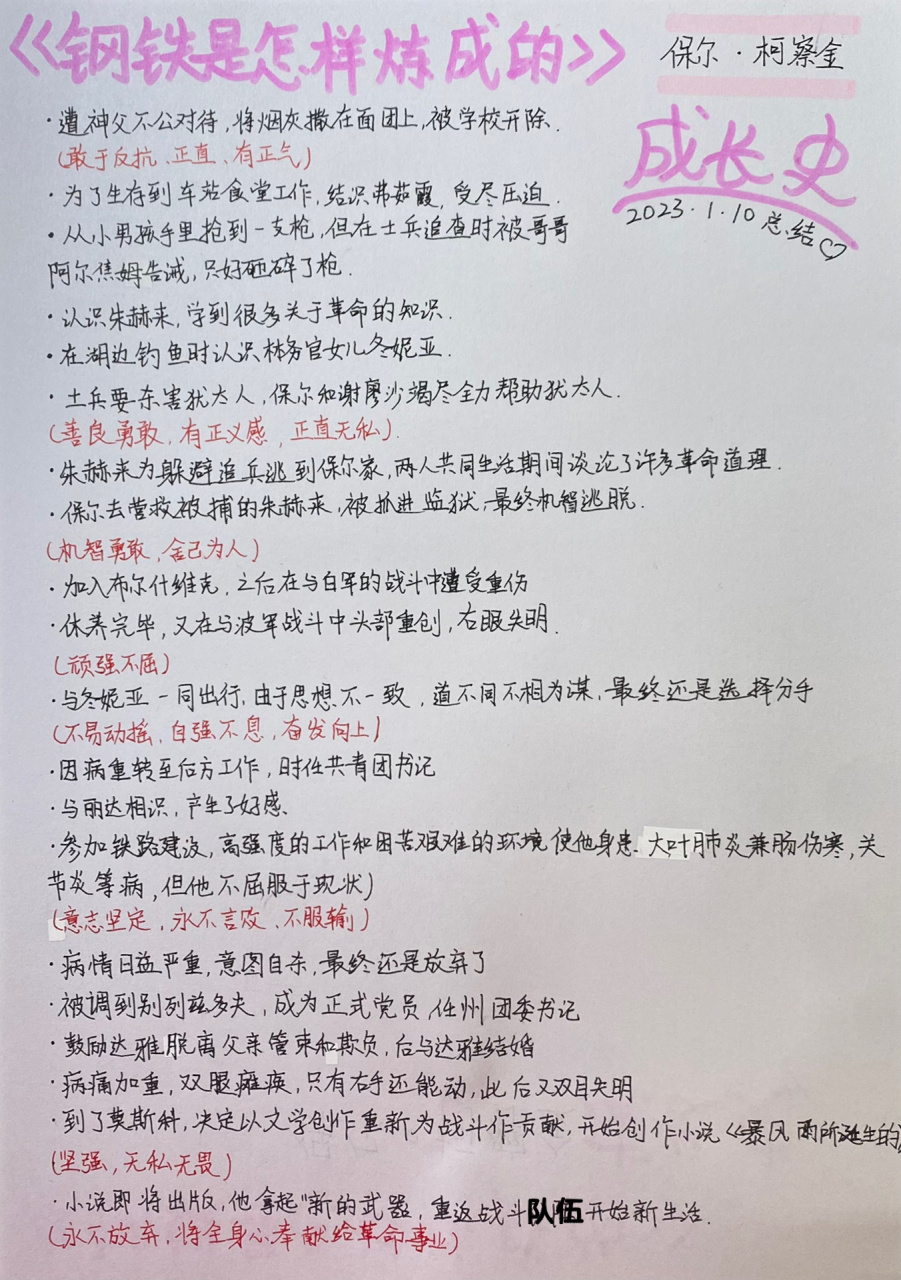 《钢铁是怎样炼成的》
保尔·柯察金
成长史
2023.1.10总结♡
·遭神父不公对待,将烟灰撒在面团上,被学校开除.
(敢于反抗、正直、有正气)
·为了生存到车站食堂工作,结识弗茹霞,受尽压迫.
·从小男孩手里抢到一支枪,但在士兵追查时被哥哥
阿尔焦姆告诫,只好砸碎了枪.
·认识朱赫来,学到很多关于革命的知识.
·在湖边钓鱼时认识林务官女儿冬妮亚.
·士兵要杀害犹太人,保尔和谢廖沙竭尽全力帮助犹太人.
(善良勇敢,有正义感,正直无私).
·朱赫来为躲避追兵逃到保尔家,两人共同生活期间谈论了许多革命道理.
·保尔去营救被捕的朱赫来,被抓进监狱,最终机智逃脱.
(机智勇敢,舍己为人)
·加入布尔什维克,之后在与白军的战斗中遭受重伤
·休养完毕,又在与波军战斗中头部重创,右眼失明.
(顽强不屈)
·与冬妮亚一同出行,由于思想不一致,道不同不相为谋,最终还是选择分手
(不易动摇、自强不息,奋发向上)
·因病重转至后方工作,时任共青团书记
·与丽达相识,产生了好感.
·参加铁路建设,高强度的工作和困苦艰难的环境使他身患大叶肺炎兼肠伤寒,关
节炎等病,但他不屈服于现状)
(意志坚定,永不言败、不服输)
·病情日益严重,意图自杀,最终还是放弃了
·被调到别列兹多夫,成为正式党员,任州团委书记
·鼓励达雅脱离父亲管束和欺负,后与达雅结婚
·病痛加重,双腿瘫痪,只有右手还能动,此后又双目失明
·到了莫斯科,决定以文学创作重新为战斗作贡献,开始创作小说《暴风雨所诞生的》
(坚强,无私无畏)
·小说即将出版,他拿起"新的武器,重返战斗队伍开始新生活.
(永不放弃,将全身心奉献给革命事业)